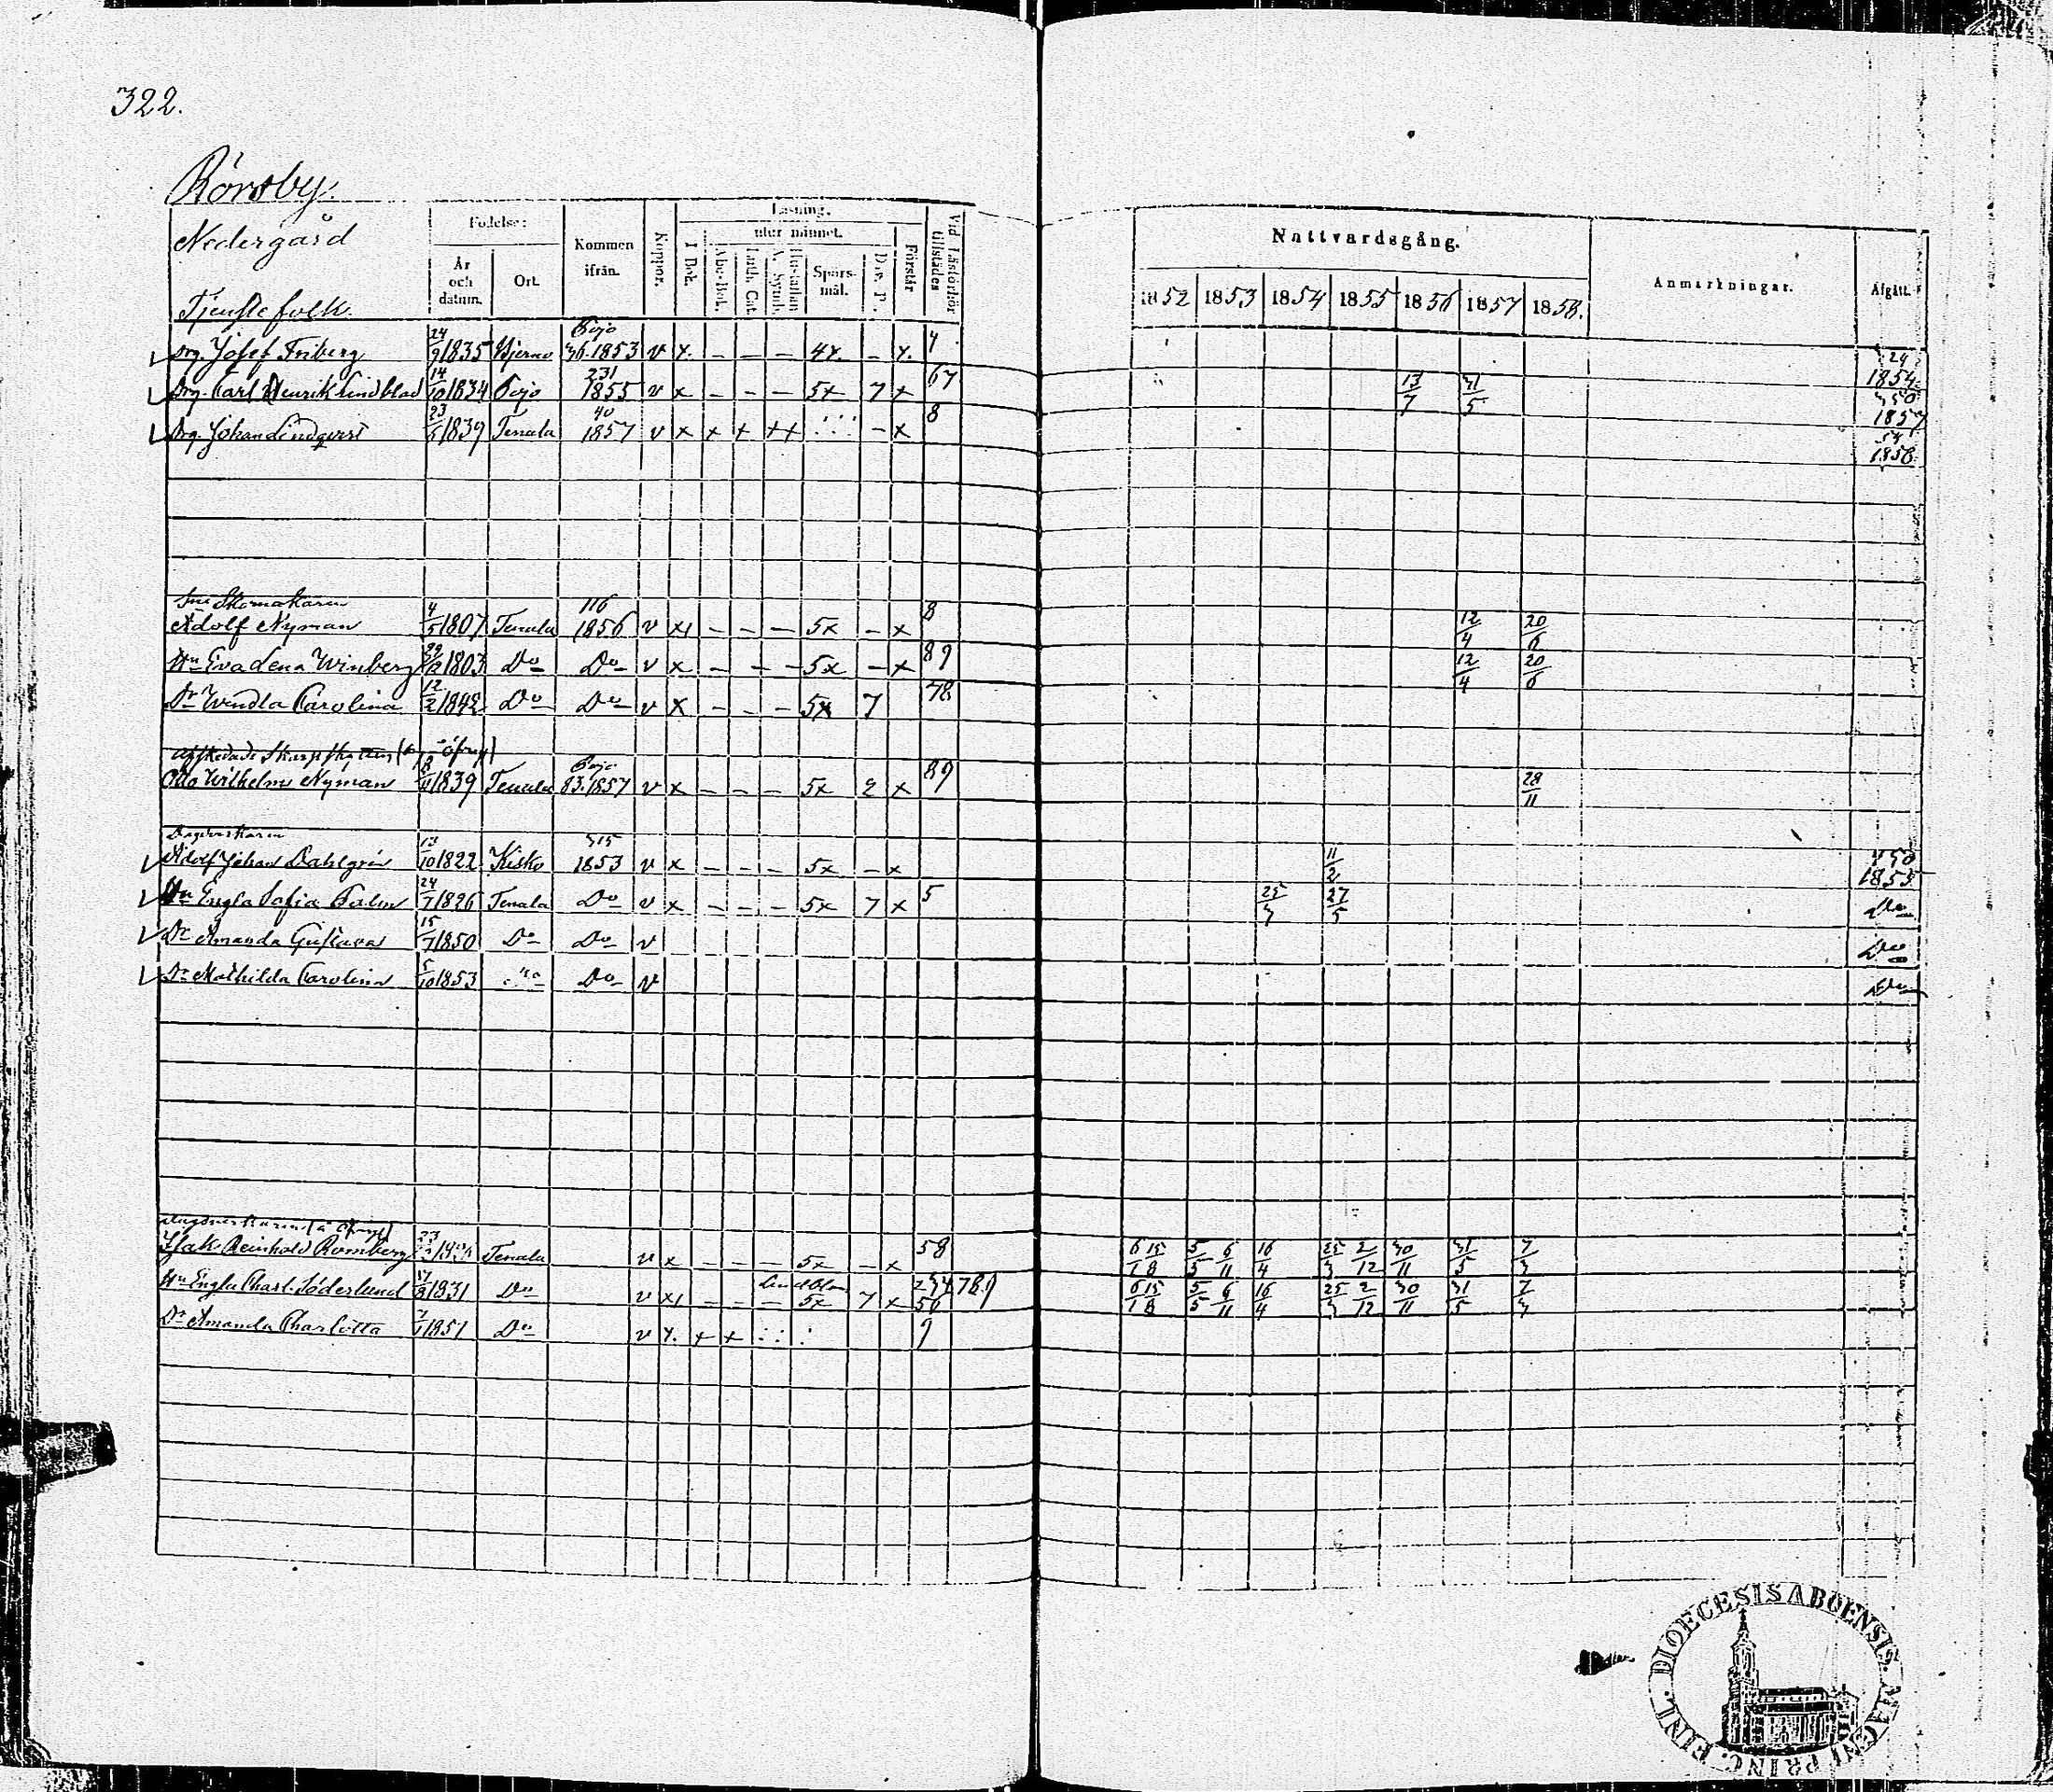 322.
Rörsby.
Nedergård
Tjenstefolk.
Födelse:
År och datum.
Ort.
Kommen ifrån.
Koppor.
Läsning.
utur minnet.
I Bok.
Abc-Bok.
Luth. Cat.
A. Symb.
Hustaflan
Spörsmål.
Dav. P.
Förstår
Vid Läsförhör tillstädes
Nattvardsgång.
1852 1853 1854 1855 1856 1857 1858.
Anmärkningar.
Afgått.
Drg. Josef Friberg 24/9 1835 Bjerno Pojo 36.1853 v x. – – – 4x. – x. 4 24 1854.
Drg. Carl Henrik Lindblad 14/10 1834 Pojo 231 1855 v x – – – 5x 7 x 67 13/7 31/5 350 1857
Drg. Johan Lindqvist 23/5 1839 Tenala 40 1857 v x x + ++ – x 8 54 1858.
Inh. Skomakaren 116
Adolf Nyman 4/5 1807 Tenala 1856 v x – – – 5x – x 8 12/4 20/6
Hu Eva Lena Winberg 1803 Do Do v x – – – 5x – x 89 12/4 20/6
Dr Wendla Carolina 12/2 1842 Do Do v x – – – 5x 7 78
Afskedade Skarpskytten
Otto Wilhelm Nyman 8/11 1839 Tenala Pojo 83.1857 v x – – – 5x 2 x 89 28/11
Dagsverkaren 315
Adolf Johan Dahlgrén 13/10 1822 Kisko 1853 v x – – – 5x – x 11/2 1855
Hu Engla Sofia Palm 24/7 1826 Tenala Do v x – – – 5x 7 x 5 25/3 27/5 Do
Dr Amanda Gustava 15/7 1850 Do Do v Do
Dr Mathilda Carolina 5/10 1853 Do Do v Do
Dagsverkaren
Isak Reinhold Romberg Tenala v x – – – 5x – x 58 6/1 15/8 5/5 6/11 16/4 25/3 2/12 30/11 31/5 7/3
Hu Engla Charl. Söderlund 17/8 1831 Do v x – – – 5x 7 x 234789 56 6/1 15/8 5/5 6/11 16/4 25/3 2/12 30/11 31/5 7/3
Dr Amanda Charlotta 7/1 1851 Do v x. + + 9
DIOECESIS ABOENSIS. MAGNI PRINC. FINL.